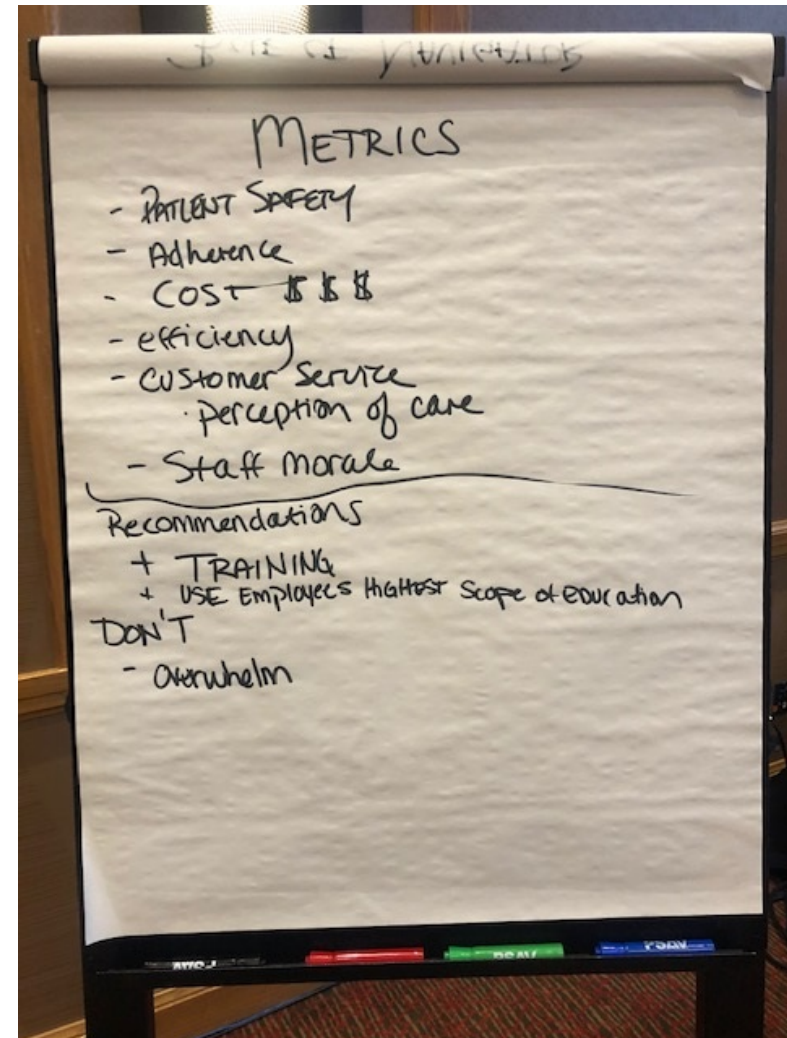 METRICS
- PATIENT SAFETY
- Adherence
- COST $ $ $
- efficiency
- Customer Service
· perception of care
- Staff Morale
Recommendations
+ TRAINING
+ USE Employees HIGHEST Scope of Education
DON'T
- Overwhelm
PSAV
PSAV